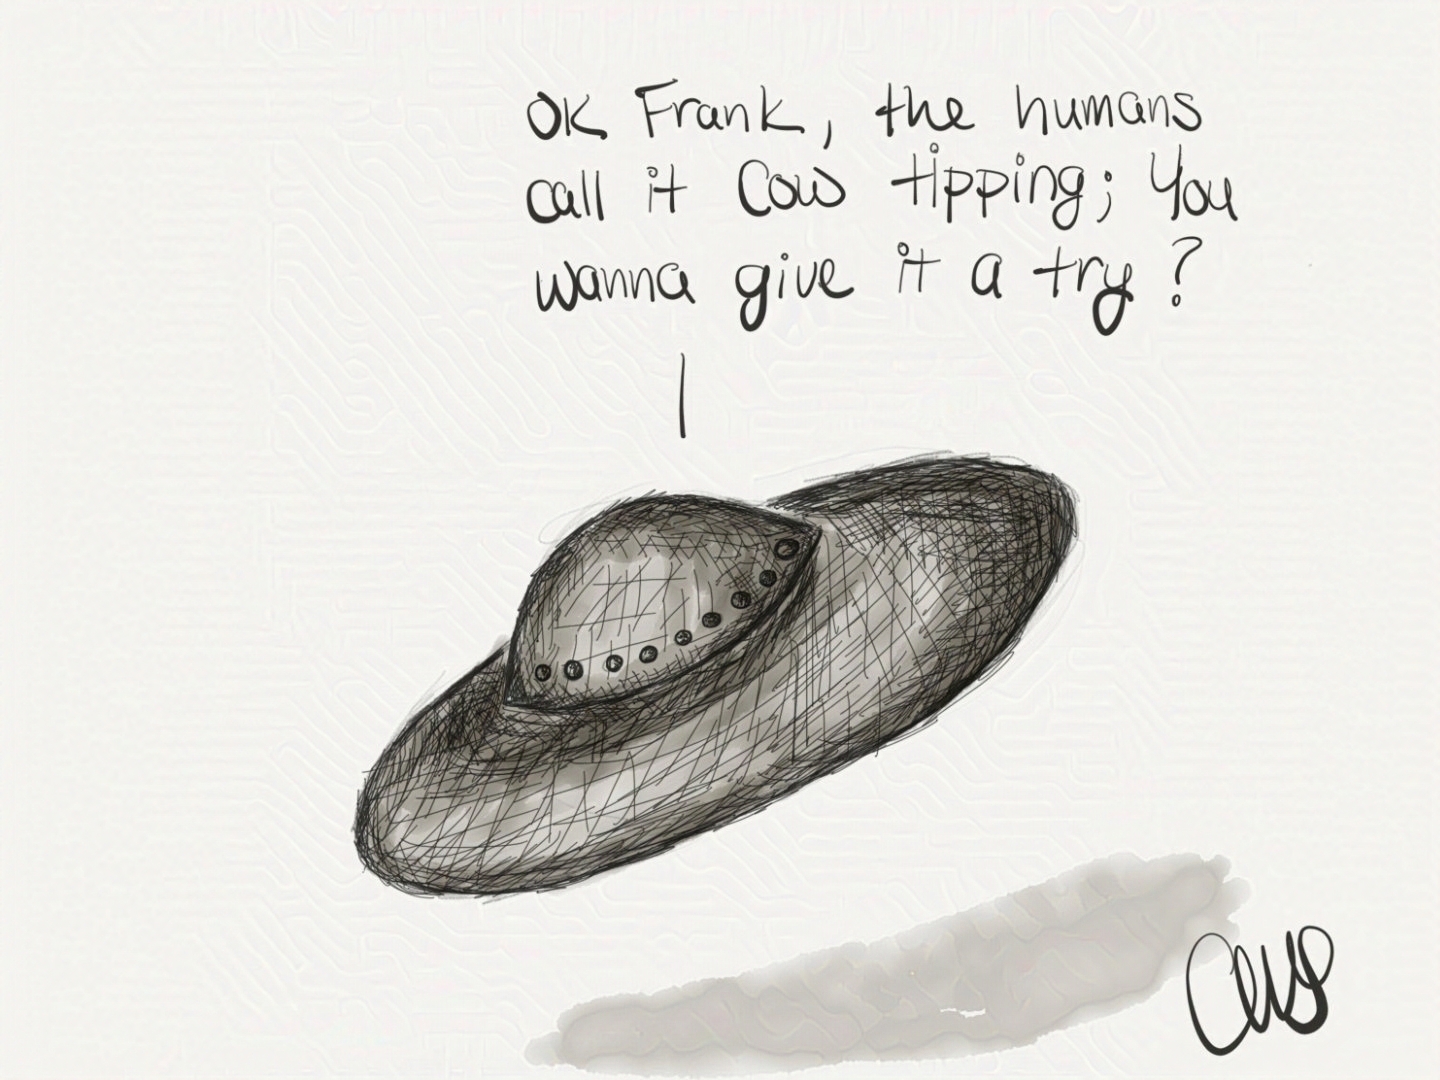 OK Frank, the humans
call it Cow tipping; You
wanna give it a try?